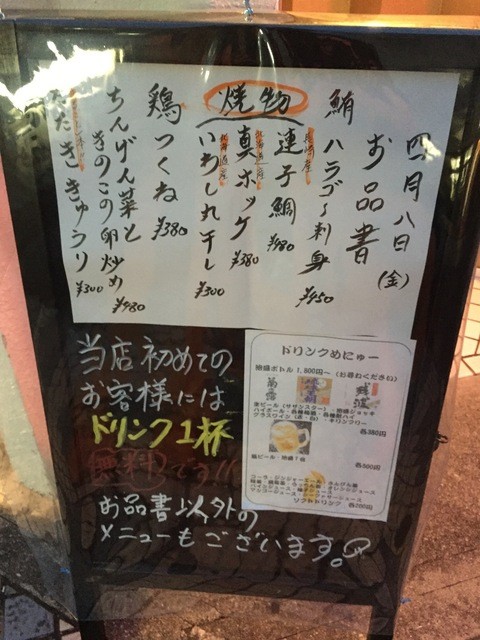 四月八日(金)
お品書
鮪ハラゴ刺身 ¥450
焼物
長崎産
連子鯛 ¥480
北海道産
真ホッケ ¥380
北海道産
いわし丸干し ¥300
鶏つくね ¥380
ちんげん菜と
きのこの卵炒め ¥480
たたききゅうり ¥300
当店初めての
お客様には
ドリンク1杯
無料です!!
お品書以外の
メニューもございます。
ドリンクめにゅー
焼酎ボトル 1,800円～(お尋ねください)
各380円
瓶ビール
各500円
ソフトドリンク 各200円